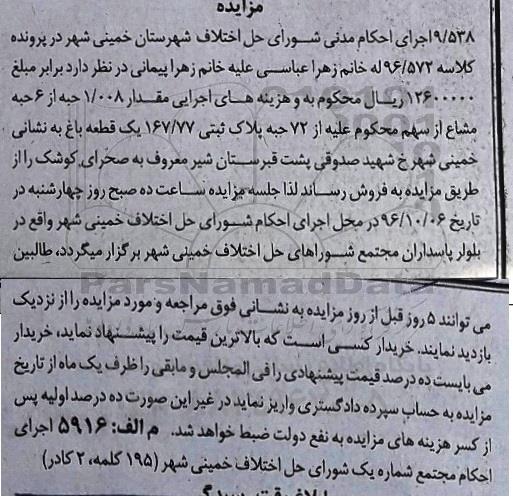 مزایده
۹/۵۳۸ اجرای احکام مدنی شورای حل اختلاف شهرستان خمینی شهر در پرونده
کلاسه ۹۶/۵۷۲ له خانم زهرا عباسی علیه خانم زهرا پیمانی در نظر دارد برابر مبلغ
۱۲۶۰۰۰۰۰ ریال محکوم به و هزینه های اجرایی مقدار ۱/۰۰۸ حبه از ۶ حبه
مشاع از سهم محکوم علیه از ۷۲ حبه پلاک ثبتی ۱۶۷/۷۷ یک قطعه باغ به نشانی
خمینی شهر خ شهید صدوقی پشت قبرستان شیر معروف به صحرای کوشک را از
طریق مزایده به فروش رساند لذا جلسه مزایده ساعت ده صبح روز چهارشنبه در
تاریخ ۹۶/۱۰/۰۶ در محل اجرای احکام شورای حل اختلاف خمینی شهر واقع در
بلوار پاسداران مجتمع شوراهای حل اختلاف خمینی شهر برگزار میگردد، طالبین
ParsNamadData
می توانند ۵ روز قبل از روز مزایده به نشانی فوق مراجعه و مورد مزایده را از نزدیک
بازدید نمایند. خریدار کسی است که بالاترین قیمت را پیشنهاد نماید، خریدار
می بایست ده درصد قیمت پیشنهادی را فی المجلس و مابقی را ظرف یک ماه از تاریخ
مزایده به حساب سپرده دادگستری واریز نماید در غیر این صورت ده درصد اولیه پس
از کسر هزینه های مزایده به نفع دولت ضبط خواهد شد. م الف: ۵۹۱۶ اجرای
احکام مجتمع شماره یک شورای حل اختلاف خمینی شهر (۱۹۵ کلمه، ۲ کادر)